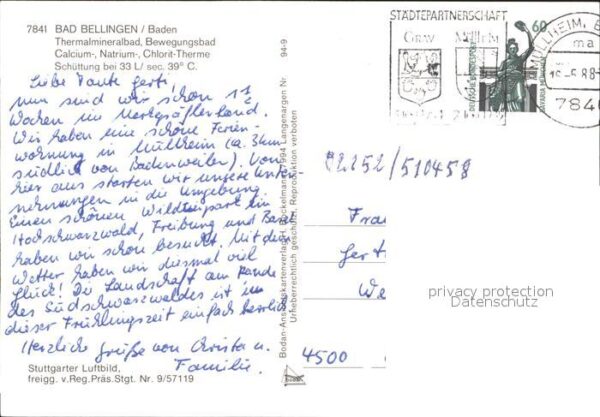 7841 BAD BELLINGEN / Baden
Thermalmineralbad, Bewegungsbad
Calcium-, Natrium-, Chlorit-Therme
Schüttung bei 33 L/ sec. 39° C.
Liebe Tante Gerti!
Nun sind wir schon 1 1/2
Wochen im Markgräflerland.
Wir haben eine schöne Ferien-
wohnung in Müllheim (ca. 3 km
südlich von Badenweiler). Von
hier aus starten wir unsere Unter-
nehmungen in die Umgebung.
Einen schönen Wildtierpark im
Hochschwarzwald, Freiburg und Basel
haben wir schon besucht. Mit dem
Wetter haben wir diesmal viel
Glück! Die Landschaft am Rande
des Südschwarzwaldes ist in
dieser Frühlingszeit einfach herrlich
Herzliche Grüße von Christa u.
Familie.
Stuttgarter Luftbild,
freigg. v.Reg.Präs.Stgt. Nr. 9/57119
94-9
Bodan-Ansichtskartenverlag H. Bockelmann 7994 Langenargen Nr
Urheberrechtlich geschützt. Reproduktion verboten
STÄDTEPARTNERSCHAFT
60
DEUTSCHE BUNDESPOST
BAVARIA MÜNCHEN
MÜLLHEIM, B
ma
-5.88-
784
02252/510458
Frau
Gert
We
4500
privacy protection
Datenschutz